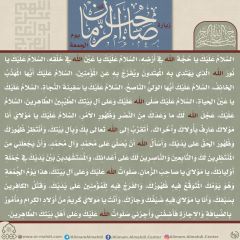 زيارة
صاحب الزمان
يوم الجمعة
السَّلامُ عَلَيْكَ يا حُجَّةَ اللهِ في أَرْضِهِ، السَّلامُ عَلَيْكَ يا عَيْنَ اللهِ في خَلْقِهِ، السَّلامُ عَلَيْكَ يا
نُورَ اللهِ الَّذي يَهْتَدي بِهِ الْمُهْتَدُونَ وَيُفَرَّجُ بِهِ عَنِ الْمُؤْمِنينَ، السَّلامُ عَلَيْكَ أَيُّهَا الْمُهَذَّبُ
الْخائِفُ، السَّلامُ عَلَيْكَ أَيُّهَا الْوَلِيُّ النّاصِحُ، السَّلامُ عَلَيْكَ يا سَفينَةَ النَّجاةِ، السَّلامُ عَلَيْكَ يا
عَيْنَ الْحَياةِ، السَّلامُ عَلَيْكَ صَلَّى اللهُ عَلَيْكَ وَعَلى آلِ بَيْتِكَ الطَّيِّبينَ الطّاهِرينَ، السَّلامُ
عَلَيْكَ عَجَّلَ اللهُ لَكَ ما وَعَدَكَ مِنَ النَّصْرِ وَظُهُورِ الْأَمْرِ، السَّلامُ عَلَيْكَ يا مَوْلايَ أَنَا
مَوْلاكَ عارِفٌ بِأُولاكَ وَأُخْراكَ، أَتَقَرَّبُ إِلَى اللهِ تَعالى بِكَ وَبِآلِ بَيْتِكَ، وَأَنْتَظِرُ ظُهُورَكَ
وَظُهُورَ الْحَقِّ عَلى يَدَيْكَ، وَأَسْأَلُ اللهَ أَنْ يُصَلِّيَ عَلى مُحَمَّدٍ وَآلِ مُحَمَّدٍ، وَأَنْ يَجْعَلَني مِنَ
الْمُنْتَظِرينَ لَكَ وَالتّابِعينَ وَالنّاصِرينَ لَكَ عَلى أَعْدائِكَ، وَالْمُسْتَشْهَدينَ بَيْنَ يَدَيْكَ في جُمْلَةِ
أَوْلِيائِكَ، يا مَوْلايَ يا صاحِبَ الزَّمانِ، صَلَواتُ اللهِ عَلَيْكَ وَعَلى آلِ بَيْتِكَ، هذا يَوْمُ الْجُمُعَةِ
وَهُوَ يَوْمُكَ الْمُتَوَقَّعُ فيهِ ظُهُورُكَ، وَالْفَرَجُ فيهِ لِلْمُؤْمِنينَ عَلى يَدَيْكَ، وَقَتْلُ الْكافِرينَ
بِسَيْفِكَ، وَأَنَا يا مَوْلايَ فيهِ ضَيْفُكَ وَجارُكَ، وَأَنْتَ يا مَوْلايَ كَريمٌ مِنْ أَوْلادِ الْكِرامِ وَمَأْمُورٌ
بِالضِّيافَةِ وَالْإِجارَةِ فَأَضِفْني وَأَجِرْني صَلَواتُ اللهِ عَلَيْكَ وَعَلى أَهْلِ بَيْتِكَ الطّاهِرينَ.